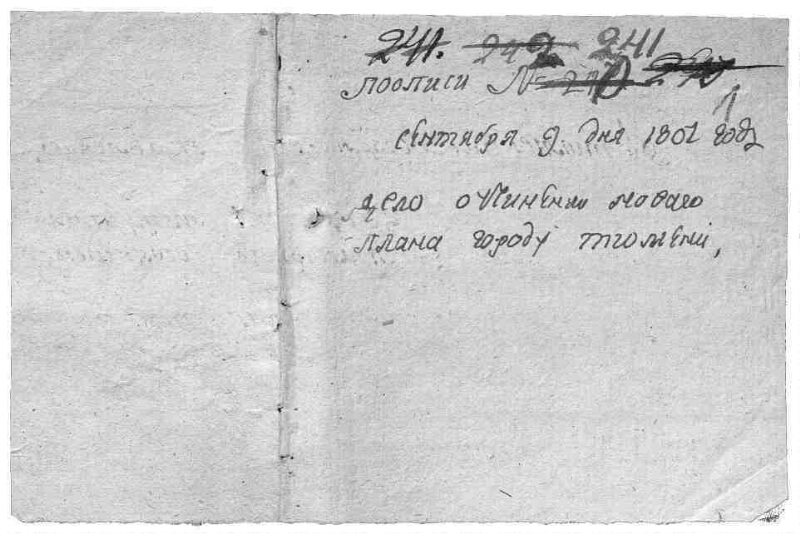 241. 249 241
поописи №
сентября 9 дня 1801 году
дело очиненiи новаго
плана городу тюмени,